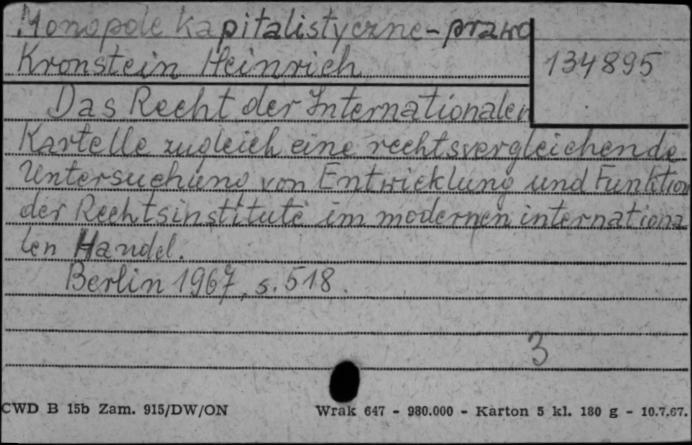 Monopole kapitalistyczne-prawo
Kronstein Heinrich
134895
Das Recht der Internationalen
Kartelle zugleich eine rechtsvergleichende
Untersuchung von Entwicklung und Funktion
der Rechtsinstitute im modernen internationa
len Handel.
Berlin 1967, s. 518.
3
CWD B 15b Zam. 915/DW/ON Wrak 647 - 980.000 - Karton 5 kl. 180 g - 10.7.67.